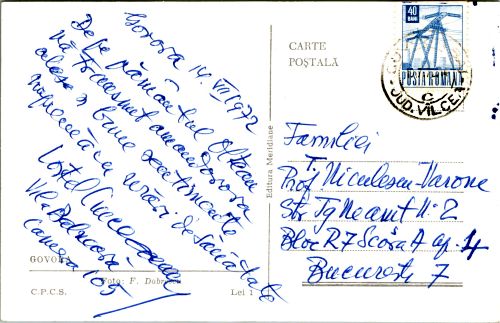 Govora 14 VII 1972
De pe pămîntul oltean
vă transmit
alese și bune sentimente
împreună cu urări de sănătate
Vila
camera 105
GOVORA
Foto: F.
C.P.C.S.
Lei 1
Editura Meridiane
CARTE
POȘTALĂ
40
BANI
POSTA ROMANA
JUD. VÎLCEA
Familiei
Prof Niculescu-Varone
Str Tg Neamt Nr 2
Bloc R7 Scara A ap. 4
Bucuresti 7